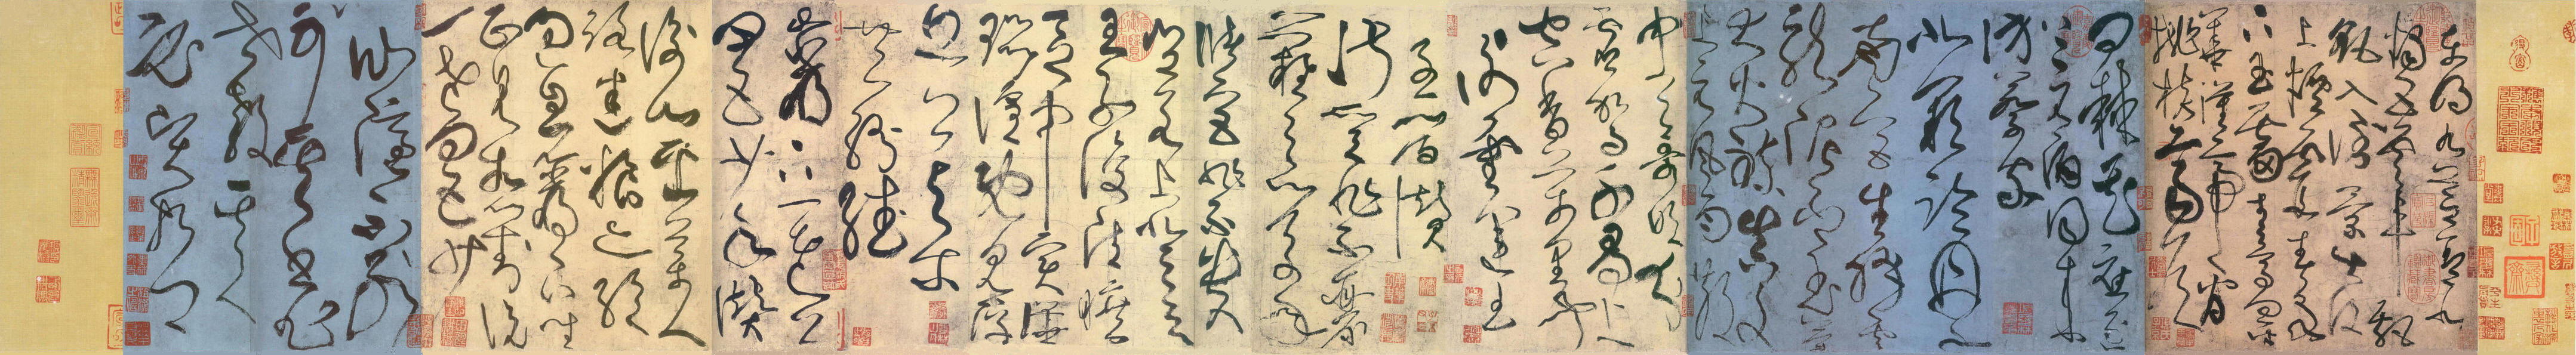 東明九芝蓋北
燭五雲車飄
飖入倒景出沒
上煙霞春泉
下玉霤青鳥向金
華漢帝看
桃核齊侯
問棘花應逐
上元酒同來
訪蔡家
北闕臨丹水
南宮生絳雲
龍泥印玉簡
大火煉真文
上元風雨散
中天哥吹分
虛駕千尋上
空香萬里聞
謝靈運王
子晉贊
淑質非不麗
難之以萬年
儲宮非不貴豈
若上登天
王子復清曠
區中實譁
囂喧既見浮
丘公與爾
共紛繙
巖下一老公
四五少年贊
衡山采藥人
路迷糧亦絕
過息巖下坐
正見相對說
一老四五少
仙隱不可別
其書非
世教其人
必賢哲